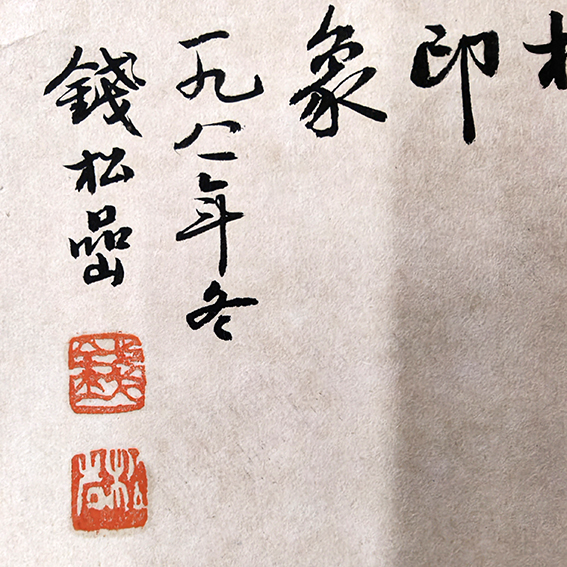 印象
一九八一年冬
錢松嵒
錢
松岩